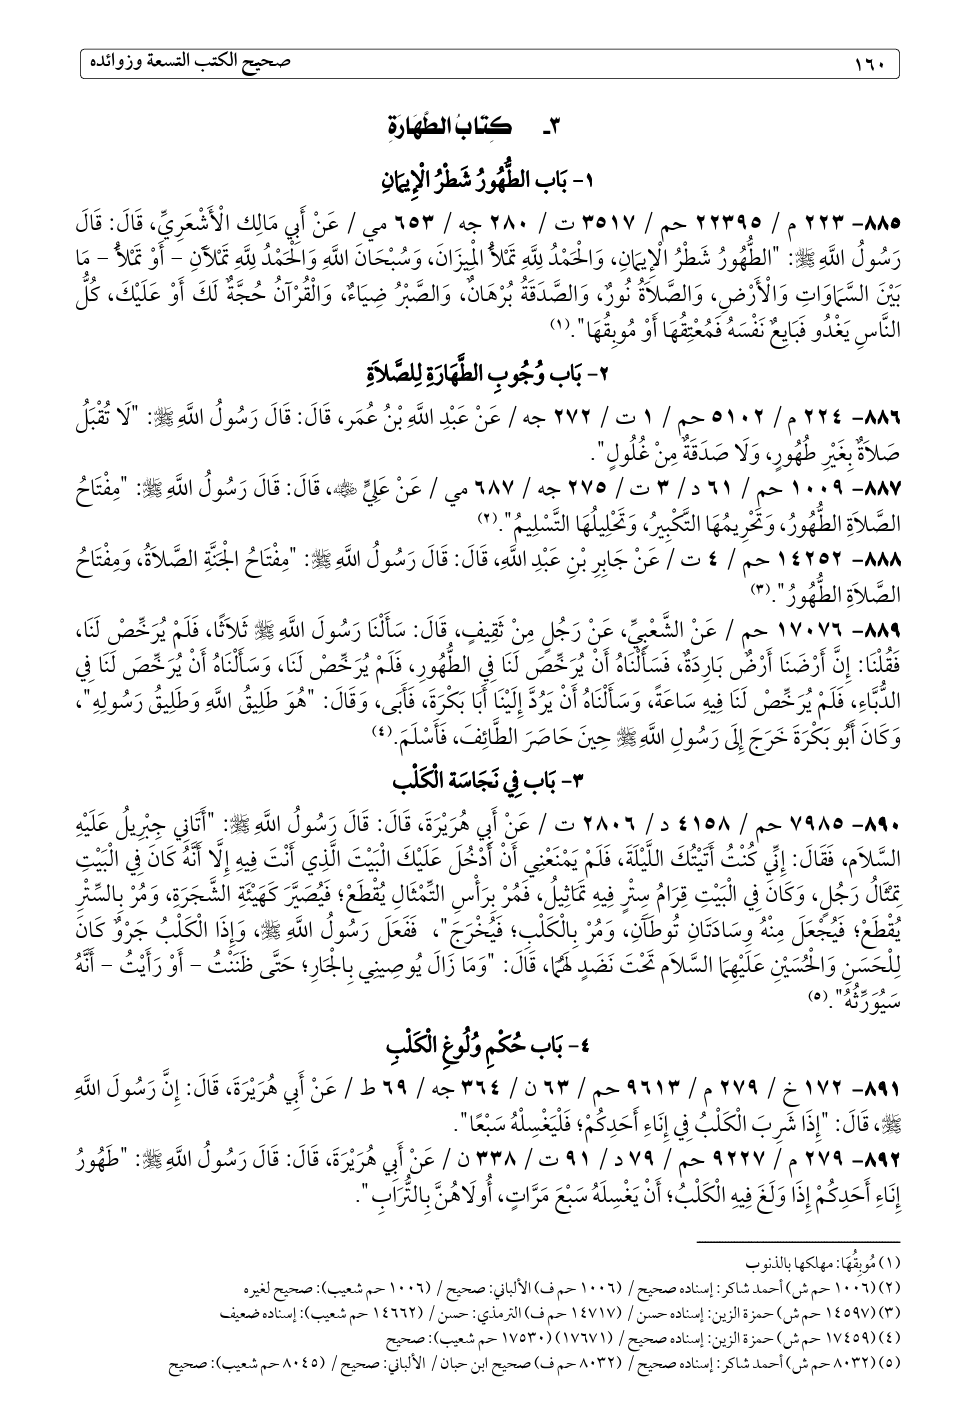 ١٦٠ صحيح الكتب التسعة وزوائده
٣ـ كِتَابُ الطَّهَارَةِ
١- بَاب الطُّهُورُ شَطْرُ الْإِيمَانِ
٨٨٥- ٢٢٣ م / ٢٢٣٩٥ حم / ٣٥١٧ ت / ٢٨٠ جه / ٦٥٣ مي / عَنْ أَبِي مَالِك الْأَشْعَرِيِّ، قَالَ: قَالَ
رَسُولُ اللَّهِ ﷺ: "الطُّهُورُ شَطْرُ الْإِيمَانِ، وَالْحَمْدُ لِلَّهِ تَمْلَأُ الْمِيزَانَ، وَسُبْحَانَ اللَّهِ وَالْحَمْدُ لِلَّهِ تَمْلَآَنِ - أَوْ تَمْلَأُ - مَا
بَيْنَ السَّمَاوَاتِ وَالْأَرْضِ، وَالصَّلَاةُ نُورٌ، وَالصَّدَقَةُ بُرْهَانٌ، وَالصَّبْرُ ضِيَاءٌ، وَالْقُرْآنُ حُجَّةٌ لَكَ أَوْ عَلَيْكَ، كُلُّ
النَّاسِ يَغْدُو فَبَايِعٌ نَفْسَهُ فَمُعْتِقُهَا أَوْ مُوبِقُهَا".(١)
٢- بَاب وُجُوبِ الطَّهَارَةِ لِلصَّلاَةِ
٨٨٦- ٢٢٤ م / ٥١٠٢ حم / ١ ت / ٢٧٢ جه / عَنْ عَبْدِ اللَّهِ بْنُ عُمَر، قَالَ: قَالَ رَسُولُ اللَّهِ ﷺ: "لَا تُقْبَلُ
صَلَاةٌ بِغَيْرِ طُهُورٍ، وَلَا صَدَقَةٌ مِنْ غُلُولٍ".
٨٨٧- ١٠٠٩ حم / ٦١ د / ٣ ت / ٢٧٥ جه / ٦٨٧ مي / عَنْ عَلِيٍّ ﵁، قَالَ: قَالَ رَسُولُ اللَّهِ ﷺ: "مِفْتَاحُ
الصَّلَاةِ الطُّهُورُ، وَتَحْرِيمُهَا التَّكْبِيرُ، وَتَحْلِيلُهَا التَّسْلِيمُ".(٢)
٨٨٨- ١٤٢٥٢ حم / ٤ ت / عَنْ جَابِرِ بْنِ عَبْدِ اللَّهِ، قَالَ: قَالَ رَسُولُ اللَّهِ ﷺ: "مِفْتَاحُ الْجَنَّةِ الصَّلَاةُ، وَمِفْتَاحُ
الصَّلَاةِ الطُّهُورُ".(٣)
٨٨٩- ١٧٠٧٦ حم / عَنْ الشَّعْبِيِّ، عَنْ رَجُلٍ مِنْ ثَقِيفٍ، قَالَ: سَأَلْنَا رَسُولَ اللَّهِ ﷺ ثَلَاثًا، فَلَمْ يُرَخِّصْ لَنَا،
فَقُلْنَا: إِنَّ أَرْضَنَا أَرْضٌ بَارِدَةٌ، فَسَأَلْنَاهُ أَنْ يُرَخِّصَ لَنَا فِي الطُّهُورِ، فَلَمْ يُرَخِّصْ لَنَا، وَسَأَلْنَاهُ أَنْ يُرَخِّصَ لَنَا فِي
الدُّبَّاءِ، فَلَمْ يُرَخِّصْ لَنَا فِيهِ سَاعَةً، وَسَأَلْنَاهُ أَنْ يَرُدَّ إِلَيْنَا أَبَا بَكْرَةَ، فَأَبَى، وَقَالَ: "هُوَ طَلِيقُ اللَّهِ وَطَلِيقُ رَسُولِهِ"،
وَكَانَ أَبُو بَكْرَةَ خَرَجَ إِلَى رَسُولِ اللَّهِ ﷺ حِينَ حَاصَرَ الطَّائِفَ، فَأَسْلَمَ.(٤)
٣- بَاب فِي نَجَاسَة الْكَلْب
٨٩٠- ٧٩٨٥ حم / ٤١٥٨ د / ٢٨٠٦ ت / عَنْ أَبِي هُرَيْرَةَ، قَالَ: قَالَ رَسُولُ اللَّهِ ﷺ: "أَتَانِي جِبْرِيلُ عَلَيْهِ
السَّلَام، فَقَالَ: إِنِّي كُنْتُ أَتَيْتُكَ اللَّيْلَةَ، فَلَمْ يَمْنَعْنِي أَنْ أَدْخُلَ عَلَيْكَ الْبَيْتَ الَّذِي أَنْتَ فِيهِ إِلَّا أَنَّهُ كَانَ فِي الْبَيْتِ
تِمْثَالُ رَجُلٍ، وَكَانَ فِي الْبَيْتِ قِرَامُ سِتْرٍ فِيهِ تَمَاثِيلُ، فَمُرْ بِرَأْسِ التِّمْثَالِ يُقْطَعْ؛ فَيُصَيَّرَ كَهَيْئَةِ الشَّجَرَةِ، وَمُرْ بِالسِّتْرِ
يُقْطَعْ؛ فَيُجْعَلَ مِنْهُ وِسَادَتَانِ تُوطَآَنِ، وَمُرْ بِالْكَلْبِ؛ فَيُخْرَجَ"، فَفَعَلَ رَسُولُ اللَّهِ ﷺ، وَإِذَا الْكَلْبُ جَرْوٌ كَانَ
لِلْحَسَنِ وَالْحُسَيْنِ عَلَيْهِمَا السَّلَام تَحْتَ نَضَدٍ لَهُمَا، قَالَ: "وَمَا زَالَ يُوصِينِي بِالْجَارِ؛ حَتَّى ظَنَنْتُ - أَوْ رَأَيْتُ - أَنَّهُ
سَيُوَرِّثُهُ".(٥)
٤- بَاب حُكْمِ وُلُوغِ الْكَلْبِ
٨٩١- ١٧٢ خ / ٢٧٩ م / ٩٦١٣ حم / ٦٣ ن / ٣٦٤ جه / ٦٩ ط / عَنْ أَبِي هُرَيْرَةَ، قَالَ: إِنَّ رَسُولَ اللَّهِ
ﷺ، قَالَ: "إِذَا شَرِبَ الْكَلْبُ فِي إِنَاءِ أَحَدِكُمْ؛ فَلْيَغْسِلْهُ سَبْعًا".
٨٩٢- ٢٧٩ م / ٩٢٢٧ حم / ٧٩ د / ٩١ ت / ٣٣٨ ن / عَنْ أَبِي هُرَيْرَةَ، قَالَ: قَالَ رَسُولُ اللَّهِ ﷺ: "طَهُورُ
إِنَاءِ أَحَدِكُمْ إِذَا وَلَغَ فِيهِ الْكَلْبُ؛ أَنْ يَغْسِلَهُ سَبْعَ مَرَّاتٍ، أُولَاهُنَّ بِالتُّرَابِ".
(١) مُوبِقُهَا: مهلكها بالذنوب
(٢) (١٠٠٦ حم ش) أحمد شاكر: إسناده صحيح / (١٠٠٦ حم ف) الألباني: صحيح / (١٠٠٦ حم شعيب): صحيح لغيره
(٣) (١٤٥٩٧ حم ش) حمزة الزين: إسناده حسن / (١٤٧١٧ حم ف) الترمذي: حسن / (١٤٦٦٢ حم شعيب): إسناده ضعيف
(٤) (١٧٤٥٩ حم ش) حمزة الزين: إسناده صحيح / (١٧٦٧١) (١٧٥٣٠ حم شعيب): صحيح
(٥) (٨٠٣٢ حم ش) أحمد شاكر: إسناده صحيح / (٨٠٣٢ حم ف) صحيح ابن حبان / الألباني: صحيح / (٨٠٤٥ حم شعيب): صحيح